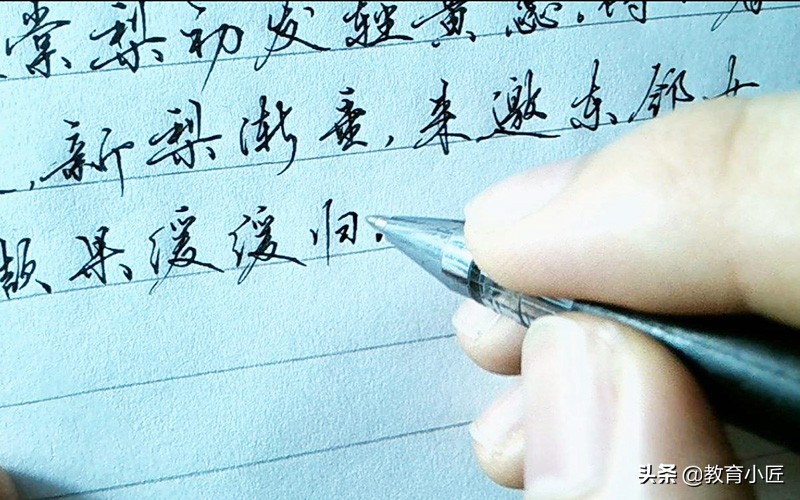 棠梨初发轻黄蕊
,新梨渐重,来邀东邻女
撷果缓缓归.
头条 @教育小匠